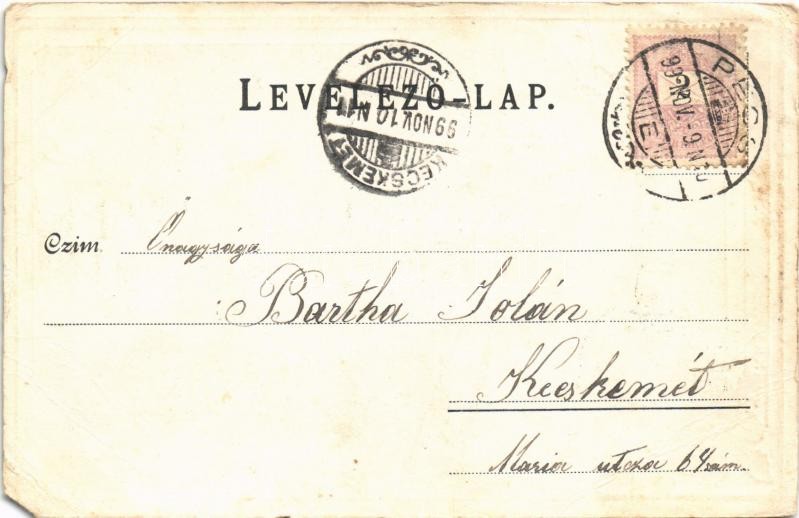 LEVELEZŐ-LAP.
KECSKEMÉT
99 NOV. 10 N11
PÉCS
99 NOV. -9 N12
Czim Őnagysága
Bartha Jolán
Kecskemét
Maria utcza 64 szám.